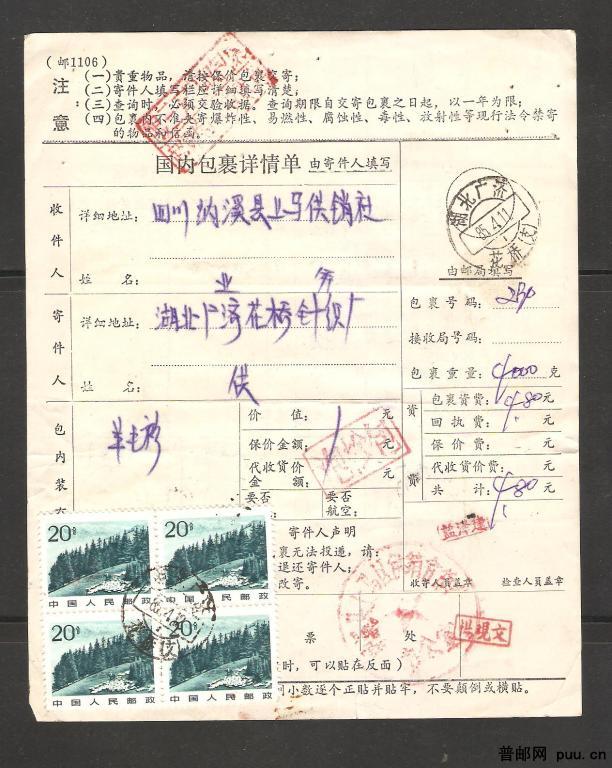 (邮1106)
注意
(一)贵重物品,请按保价包裹交寄;
(二)寄件人填写栏应详细填写清楚;
(三)查询时,必须交验收据,查询期限自交寄包裹之日起,以一年为限;
(四)包裹内不准夹寄爆炸性、易燃性、腐蚀性、毒性、放射性等现行法令禁寄
的物品和信函。
国内包裹详情单 由寄件人填写
湖北广济
85.4.11
花桥(支)
收件人
详细地址: 四川纳溪县上马供销社
姓名: 业务
由邮局填写
寄件人
详细地址: 湖北广济花桥针织厂
姓名: 供
包裹号码: 240
接收局号码:
包裹重量: 克
包内装
羊毛衫
价值: 元
保价金额: 元
代收货价
金额: 元
要否 要否
航空:
资费
包裹资费: 元
回执费: 元
保价费: 元
代收货价费: 元
共计: 元
寄件人声明
裹无法投递,请:
退还寄件人;
改寄。
收寄人员盖章 检查人员盖章
票处
时,可以贴在反面)
小数逐个正贴并贴牢,不要颠倒或横贴。
20分 20分
中国人民邮政 中国人民邮政
20分 20分
中国人民邮政 中国人民邮政
普邮网 puu.cn